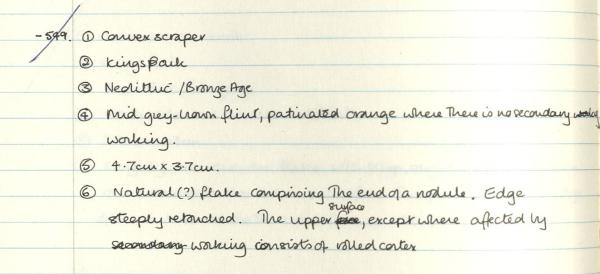 -549. ① Convex scraper
② Kings Park
③ Neolithic / Bronze Age
④ Mid grey-brown flint, patinated orange where there is no secondary
working.
⑤ 4.7cm x 3.7cm.
⑥ Natural (?) flake comprising the end of a nodule. Edge
steeply retouched. The upper face surface, except where affected by
secondary working consists of rolled cortex